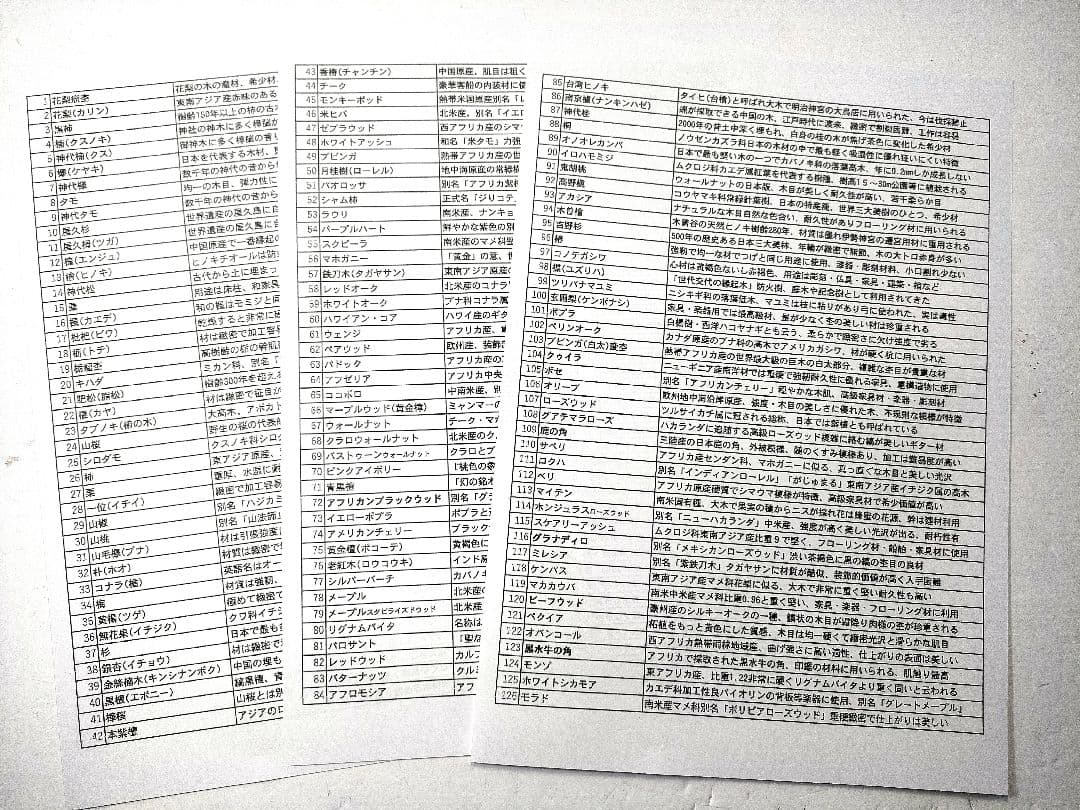 1 花梨瘤杢 花梨の木の瘤材、希少材
2 花梨(カリン) 東南アジア産赤味のある
3 黒柿 樹齢150年以上の柿の古木
4 楠(クスノキ) 神社の神木に多く樟脳が
5 神代楠(クス) 御神木に多く樟脳の香り
6 欅(ケヤキ) 日本を代表する木材、
7 神代欅 数千年の神代の昔から
8 タモ 均一の木目、弾力性に
9 神代タモ 数千年の神代の昔から
10 屋久杉 世界遺産の屋久島に自
11 屋久栂(ツガ) 世界遺産の屋久島に
12 槐(エンジュ) 中国原産で一番縁起の
13 桧(ヒノキ) ヒノキチオールは防
14 神代松 古代から土に埋まっ
15 桑 用途は床柱、和家具
16 楓(カエデ) 和の楓はモミジと同
17 枇杷(ビワ) 乾燥すると非常に
18 栃(トチ) 材は緻密で加工容
19 栃瘤杢
20 キハダ ミカン科、別名「
21 肥松(脂松) 樹齢300年を超え
22 榧(カヤ) 材は緻密で柾目が
23 タブノキ(椨の木) 大高木、アボカト
24 山桜 野生の桜の代表
25 シロダモ クスノキ科シロ
26 柿 東アジア原産、
27 栗 重厚、水湿に
28 一位(イチイ) 緻密で加工容易
29 山椒 別名「ハジカミ
30 山桃 別名「山法師」
31 山毛欅(ブナ)
32 朴(ホオ) 材質は緻密で
33 コナラ(楢) 英語名はオー
34 槇 材質は強靭、
35 黄楊(ツゲ) 極めて緻密で
36 無花果(イチジク) クワ科イチジ
37 杉 日本で最も
38 銀杏(イチョウ) 材は緻密で
39 金絲楠木(キンシナンボク) 中国の埋も
40 黒檀(エボニー) 縞黒檀、青
41 樺桜 山桜とは別
42 本紫檀 アジアのロ
43 香椿(チャンチン) 中国原産、肌目は粗く
44 チーク 豪華客船の内装材に使
45 モンキーポッド 熱帯米国原産別名「
46 米ヒバ 北米産、別名「イエロ
47 ゼブラウッド 西アフリカ産のシマウ
48 ホワイトアッシュ 和名「米タモ」力強
49 ブビンガ 熱帯アフリカ産の
50 月桂樹(ローレル) 地中海原産の常緑樹
51 パオロッサ 別名「アフリカ紫檀
52 シャム柿 正式名「ジリコテ」
53 ラウリ 南米産、ナンキョ
54 パープルハート 鮮やかな紫色の
55 スクピーラ 南米産のマメ科
56 マホガニー 「黄金」の意、世
57 鉄刀木(タガヤサン) 東南アジア原産
58 レッドオーク 北米産のコナラ
59 ホワイトオーク ブナ科コナラ属
60 ハワイアン・コア ハワイ産のギタ
61 ウェンジ アフリカ産、
62 ペアウッド 欧州産、装飾
63 パドック アフリカ産の
64 アンゼリア アフリカ中央
65 ココボロ 中南米産、別
66 マーブルウッド(黄金樟) ミャンマーの
67 ウォールナット チーク・マホ
68 クラロウォールナット 北米産のク
69 バストゥーンウォールナット クラロとブ
70 ピンクアイボリー 「桃色の象
71 青黒檀 「幻の銘木
72 アフリカンブラックウッド 別名「グラ
73 イエローポプラ ポプラと
74 アメリカンチェリー ブラック
75 黄金檀(ボコーテ) 黄褐色に
76 老紅木(ロウコウキ) インド原
77 シルバーバーチ カバノキ
78 メープル 北米産の
79 メープルスタビライズドウッド 北米産
80 リグナムバイタ 名称は
81 パロサント 「聖な
82 レッドウッド カルフ
83 バターナッツ クルミ
84 アフロモシア アフ
85 台湾ヒノキ タイヒ(台檜)と呼ばれ大木で明治神宮の大鳥居に用いられた、今は伐採禁止
86 南京櫨(ナンキンハゼ) 蝋が採取できる中国の木、江戸時代に渡来、緻密で割裂困難、工作は容易
87 神代桂 2000年の昔土中深く埋もれ、白身の桂の木が焦げ茶色に変化した希少材
88 桐 ノウゼンカズラ科日本の木材の中で最も軽く吸湿性に優れ狂いにくい特徴
89 オノオレカンバ 日本で最も堅い木の一つでカバノキ科の落葉高木、年に0.2mmしか成長しない
90 イロハモミジ ムクロジ科カエデ属紅葉を代表する樹種、樹高15～30m公園等に植栽される
91 鬼胡桃 ウォールナットの日本版、木目が美しく耐久性が高い、若干柔らか目
92 高野槇 コウヤマキ科常緑針葉樹、日本の特産種、世界三大美樹のひとつ、希少材
93 アカシア ナチュラルな木目自然な色合い、耐久性がありフローリング材に用いられる
94 木曽檜 木曽谷の天然ヒノキ樹齢280年、材質は優れ伊勢神宮の遷宮用材に重用される
95 吉野杉 500年の歴史ある日本三大美林、年輪が緻密で無節、木の大トロ赤身が多い
96 椿 強靭で均一な材でつげと同じ用途に使用、漆器・彫刻材料、小口割れ少ない
97 コノテガシワ 心材は黄褐色ないし赤褐色、用途は彫刻・仏具・家具・建築・箱など
98 楪(ユズリハ) 「世代交代の縁起木」防火樹、庭木や記念樹として利用されてきた
99 ツリバナマユミ ニシキギ科の落葉低木、マユミは枝に粘りがあり弓に使われた、実は毒性
100 玄圃梨(ケンポナシ) 家具・楽器用では最高級材、髄が少なく杢の美しい材は珍重される
101 ポプラ 白楊樹・西洋ハコヤナギとも云う、柔らかで緻密さに欠け強度で劣る
102 ペリンオーク カナダ原産のブナ科の高木でアメリカガシワ、材が硬く杭に用いられた
103 ブビンガ(白太)瘤杢 熱帯アフリカ産の世界最大級の巨木の白太部分、複雑な杢目が貴重な材
104 クゥイラ ニューギニア産南洋材では堅硬で強靭耐久性に優れる家具、重構造物に使用
105 ボセ 別名「アフリカンチェリー」軽やかな木肌、高級家具材・楽器・彫刻材
106 オリーブ 欧州地中海沿岸原産、強度・木目の美しさに優れた木、不規則な模様が特徴
107 ローズウッド ツルサイカチ属に冠される総称、日本では紫檀とも呼ばれている
108 グアテマラローズ ハカランダに追随する高級ローズウッド複雑に絡む縞が美しいギター材
109 鹿の角
110 サペリ アフリカ産センダン科、マホガニーに似る、真っ直ぐな木目と美しい光沢
111 ロクハ 別名「インディアンローレル」「がじゅまる」東南アジア産イチジク属の高木
112 ベリ アフリカ原産硬質でシマウマ模様が特徴、高級家具材で希少価値が高い
113 マイテン
114 ホンジュラスローズウッド 別名「ニューハカランダ」中米産、強度が高く美しい光沢が出る、耐朽性有
115 スケアリーアッシュ ムクロジ科東南アジア産比重9で堅く、フローリング材・船舶・家具材に使用
116 グラナディロ 別名「メキシカンローズウッド」渋い茶褐色に黒の縞の杢目の良材
117 ミレシア 別名「紫鉄刀木」タガヤサンに材質が酷似、装飾的価値が高く入手困難
118 ケンパス 東南アジア産マメ科花梨に似る、大木で非常に重く堅い耐久性も高い
119 マカカウバ 南米中米産マメ科比重0.96と重く堅い、家具・楽器・フローリング材に利用
120 ビーフウッド 豪州産のシルキーオークの一種、鱗状の木目が霜降り肉様の杢が珍重される
121 ペクイア 柘植をもっと黄色にした質感、木目は均一硬くて緻密光沢と滑らかな肌目
122 オバンコール 西アフリカ熱帯雨林地域産、曲げ強さに高い適性、仕上がりの表面は美しい
123 黒水牛の角 アフリカで採取された黒水牛の角、印鑑の材料に用いられる、肌触り最高
124 モンゾ 東アフリカ産、比重1.22非常に硬くリグナムバイタより重く固いと云われる
125 ホワイトシカモア カエデ科加工性良バイオリンの背板等楽器に使用、別名「グレートメープル」
126 モラド 南米産マメ科別名「ボリビアローズウッド」堅硬緻密で仕上がりは美しい